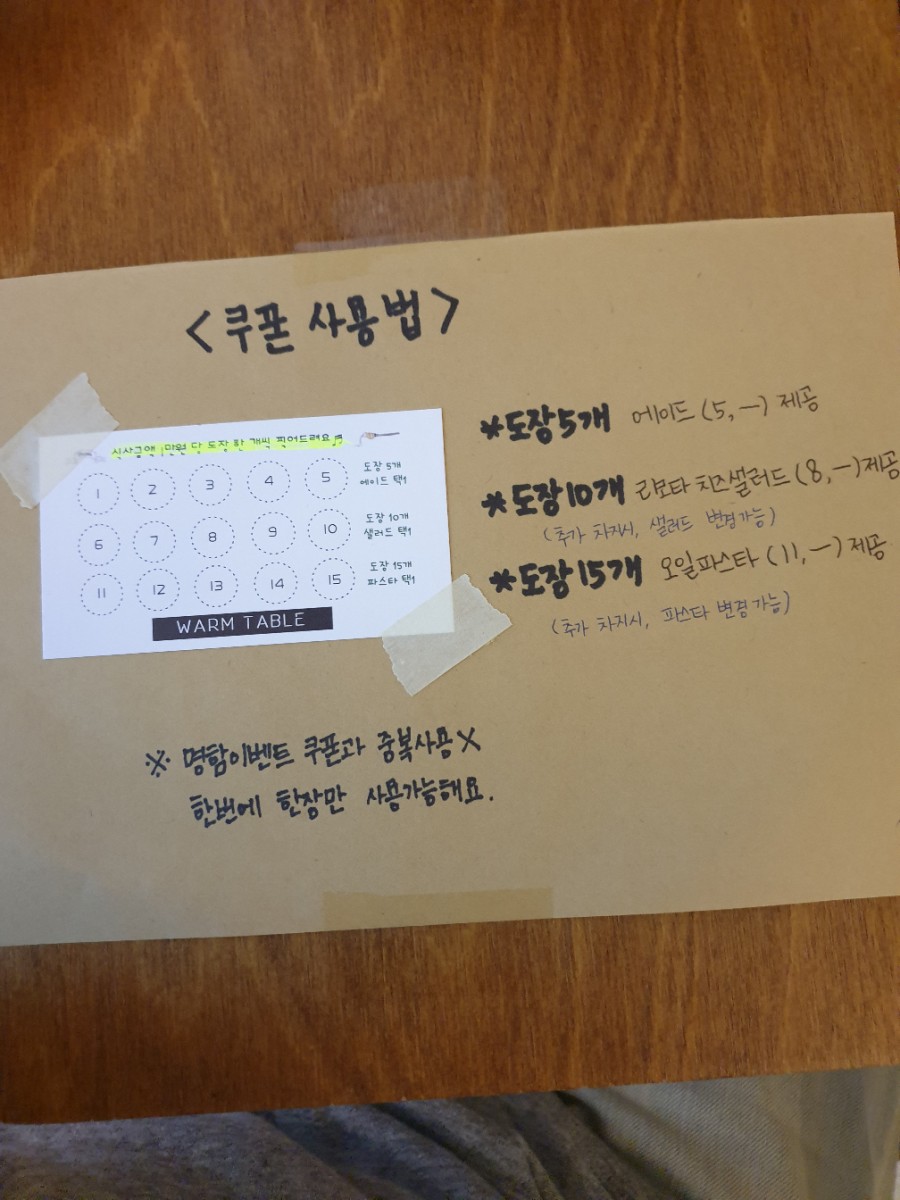 <쿠폰 사용법>
식사금액 1만원 당 도장 한 개씩 찍어드려요♬
1 2 3 4 5 도장 5개
에이드 택1
6 7 8 9 10 도장 10개
샐러드 택1
11 12 13 14 15 도장 15개
파스타 택1
WARM TABLE
*도장5개 에이드 (5,-) 제공
*도장10개 리코타 치즈샐러드 (8,-) 제공
(추가 차지시, 샐러드 변경가능)
*도장15개 오일파스타 (11,-) 제공
(추가 차지시, 파스타 변경가능)
※ 명함이벤트 쿠폰과 중복사용 X
한번에 한장만 사용가능해요.